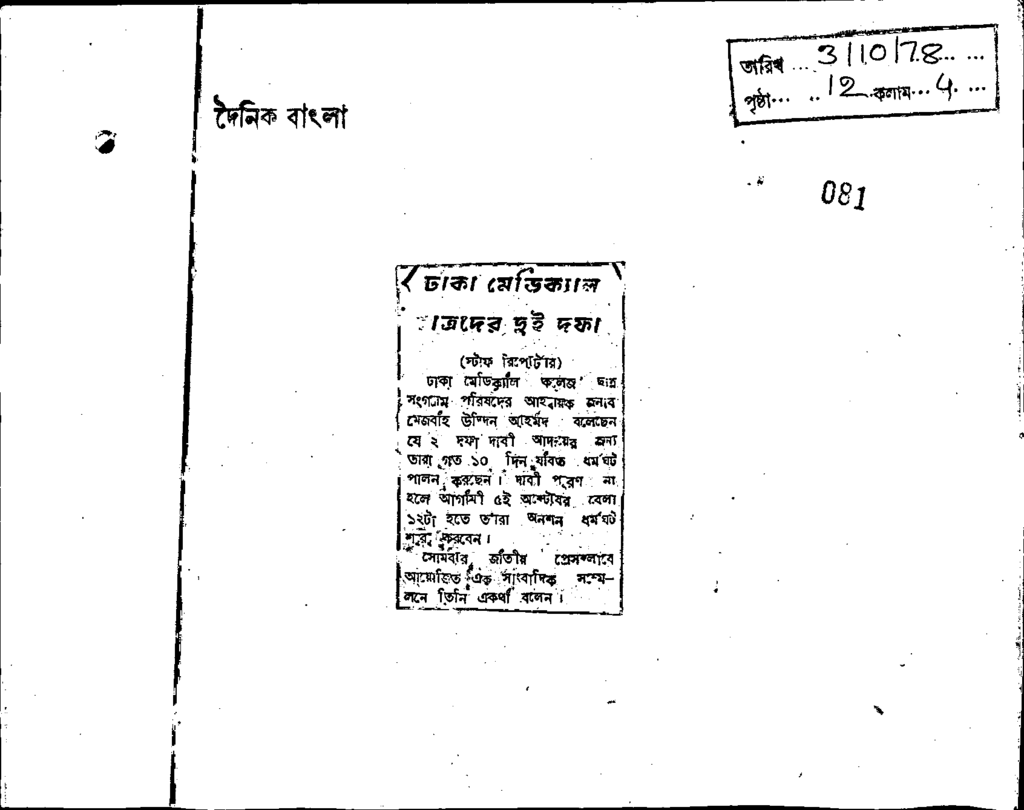 তারিখ ... 3/10/78 ... ...
পৃষ্ঠা ... .. 12 . কলাম ... 4 . ...
দৈনিক বাংলা
081
ঢাকা মেডিক্যাল
াত্রদের দুই দফা
(স্টাফ রিপোর্টার)
ঢাকা মেডিক্যাল কলেজ ছাত্র
সংগ্রাম পরিষদের আহ্বায়ক জনাব
মেজবাহ উদ্দিন আহমদ বলেছেন
যে ২ দফা দাবী আদায়ের জন্য
তারা গত ১০ দিন যাবত ধর্মঘট
পালন করছেন। দাবী পূরণ না
হলে আগামী ৫ই অক্টোবর বেলা
১২টা হতে তারা অনশন ধর্মঘট
শুরু করবেন।
সোমবার জাতীয় প্রেসক্লাবে
আয়োজিত এক সাংবাদিক সম্মে-
লনে তিনি একথা বলেন।